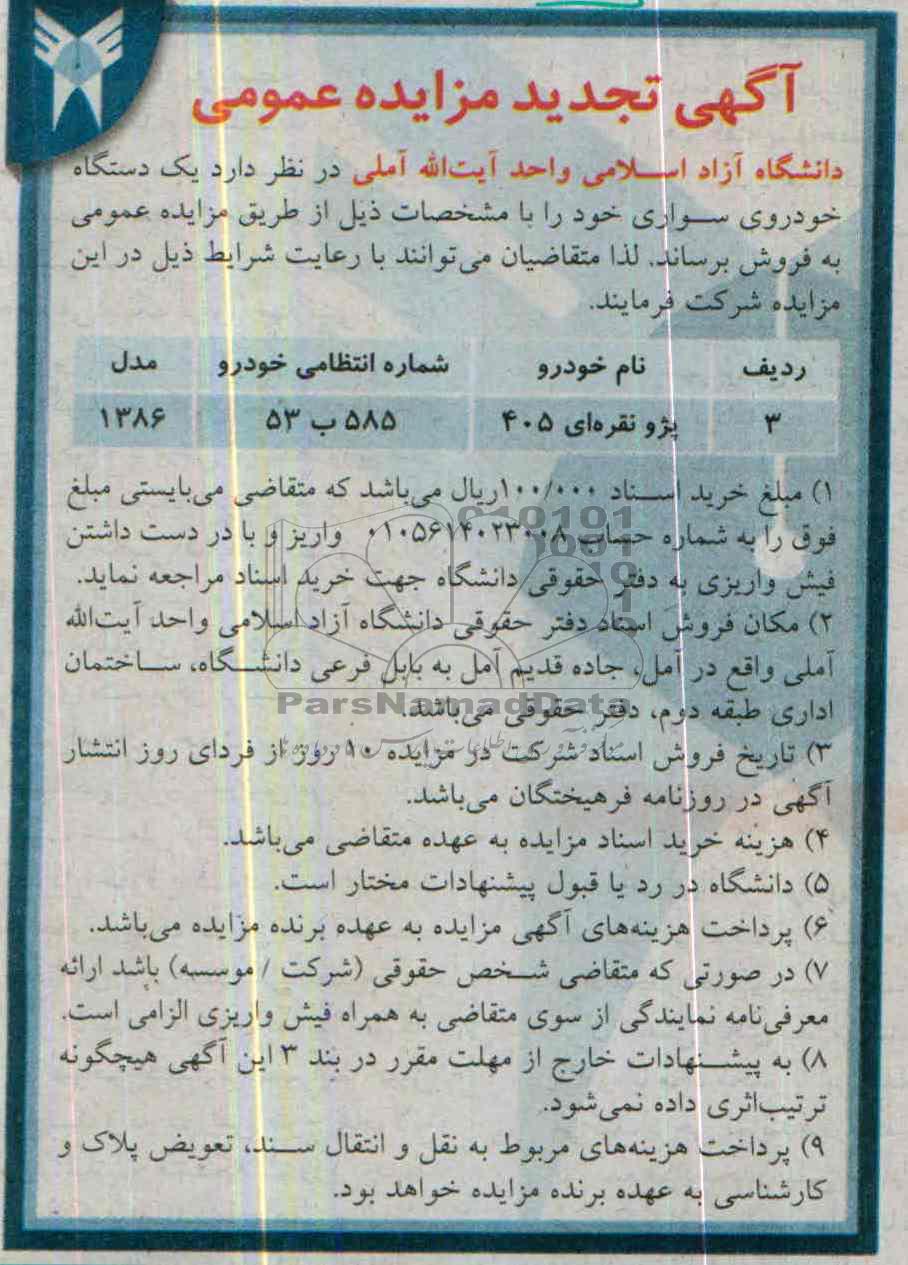 آگهی تجدید مزایده عمومی
دانشگاه آزاد اسلامی واحد آیت‌الله آملی در نظر دارد یک دستگاه
خودروی سواری خود را با مشخصات ذیل از طریق مزایده عمومی
به فروش برساند. لذا متقاضیان می‌توانند با رعایت شرایط ذیل در این
مزایده شرکت فرمایند.
ردیف نام خودرو شماره انتظامی خودرو مدل
۳ پژو نقره‌ای ۴۰۵ ۵۸۵ ب ۵۳ ۱۳۸۶
۱) مبلغ خرید اسناد ۱۰۰/۰۰۰ریال می‌باشد که متقاضی می‌بایستی مبلغ
فوق را به شماره حساب ۰۱۰۵۶۱۴۰۲۳۰۰۸ واریز و با در دست داشتن
فیش واریزی به دفتر حقوقی دانشگاه جهت خرید اسناد مراجعه نماید.
۲) مکان فروش اسناد دفتر حقوقی دانشگاه آزاد اسلامی واحد آیت‌الله
آملی واقع در آمل، جاده قدیم آمل به بابل فرعی دانشگاه، ساختمان
اداری طبقه دوم، دفتر حقوقی می‌باشد.
ParsNamadData
۳) تاریخ فروش اسناد شرکت در مزایده ۱۰ روز از فردای روز انتشار
آگهی در روزنامه فرهیختگان می‌باشد.
۴) هزینه خرید اسناد مزایده به عهده متقاضی می‌باشد.
۵) دانشگاه در رد یا قبول پیشنهادات مختار است.
۶) پرداخت هزینه‌های آگهی مزایده به عهده برنده مزایده می‌باشد.
۷) در صورتی که متقاضی شخص حقوقی (شرکت / موسسه) باشد ارائه
معرفی‌نامه نمایندگی از سوی متقاضی به همراه فیش واریزی الزامی است.
۸) به پیشنهادات خارج از مهلت مقرر در بند ۳ این آگهی هیچگونه
ترتیب‌اثری داده نمی‌شود.
۹) پرداخت هزینه‌های مربوط به نقل و انتقال سند، تعویض پلاک و
کارشناسی به عهده برنده مزایده خواهد بود.